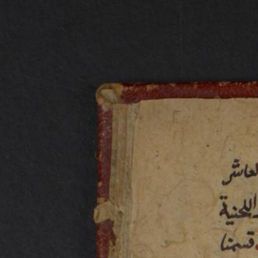 العاشر
اللحنية
قسمنا